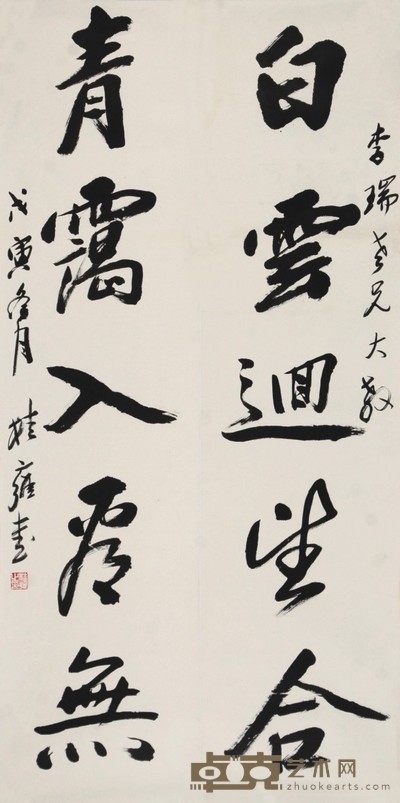 李瑞老兄大教
白雲迴望合
青靄入看無
戊寅冬月
桂雍書
卓克艺术网
zhuokearts.com